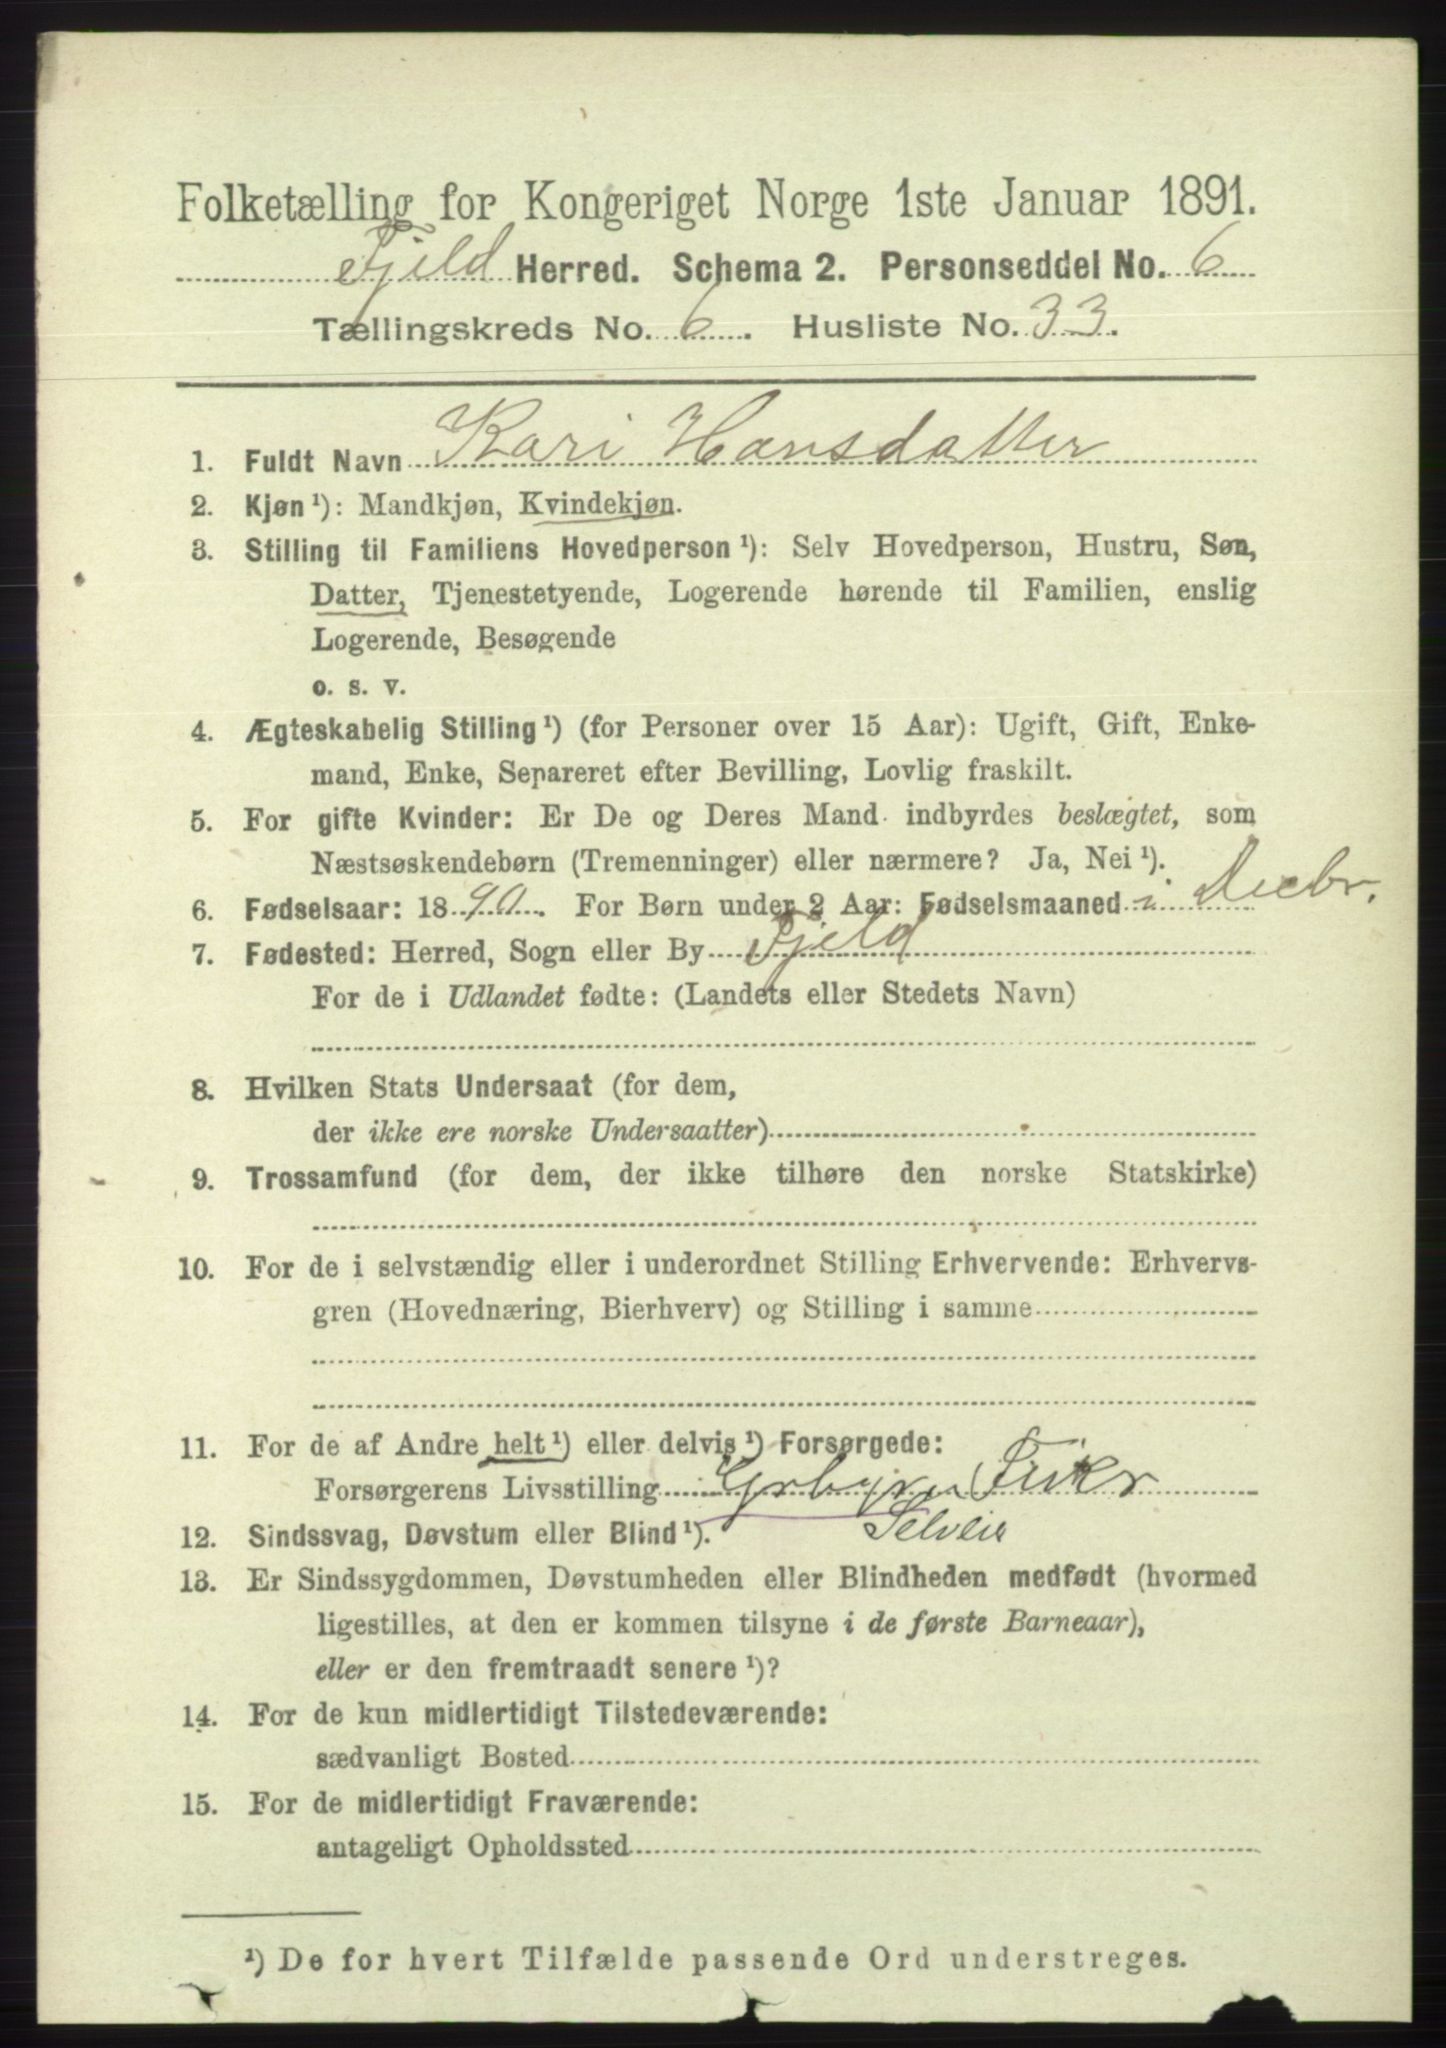 Folketælling for Kongeriget Norge 1ste Januar 1891.
Fjeld Herred. Schema 2. Personseddel No. 6
Tællingskreds No. 6. Husliste No. 33.
1. Fuldt Navn Kari Hansdatter
2. Kjøn ¹): Mandkjøn, Kvindekjøn.
3. Stilling til Familiens Hovedperson ¹): Selv Hovedperson, Hustru, Søn,
Datter, Tjenestetyende, Logerende hørende til Familien, enslig
Logerende, Besøgende
o. s. v.
4. Ægteskabelig Stilling ¹) (for Personer over 15 Aar): Ugift, Gift, Enke-
mand, Enke, Separeret efter Bevilling, Lovlig fraskilt.
5. For gifte Kvinder: Er De og Deres Mand indbyrdes beslægtet, som
Næstsøskendebørn (Tremenninger) eller nærmere? Ja, Nei ¹).
6. Fødselsaar: 1890. For Børn under 2 Aar: Fødselsmaaned i Decbr.
7. Fødested: Herred, Sogn eller By Fjeld
For de i Udlandet fødte: (Landets eller Stedets Navn)
8. Hvilken Stats Undersaat (for dem,
der ikke ere norske Undersaatter)
9. Trossamfund (for dem, der ikke tilhøre den norske Statskirke)
10. For de i selvstændig eller i underordnet Stilling Erhvervende: Erhvervs-
gren (Hovednæring, Bierhverv) og Stilling i samme
11. For de af Andre helt ¹) eller delvis ¹) Forsørgede:
Forsørgerens Livsstilling Grbgr Fisker
Selveier
12. Sindssvag, Døvstum eller Blind ¹).
13. Er Sindssygdommen, Døvstumheden eller Blindheden medfødt (hvormed
ligestilles, at den er kommen tilsyne i de første Barneaar),
eller er den fremtraadt senere ¹)?
14. For de kun midlertidigt Tilstedeværende:
sædvanligt Bosted
15. For de midlertidigt Fraværende:
antageligt Opholdssted
¹) De for hvert Tilfælde passende Ord understreges.